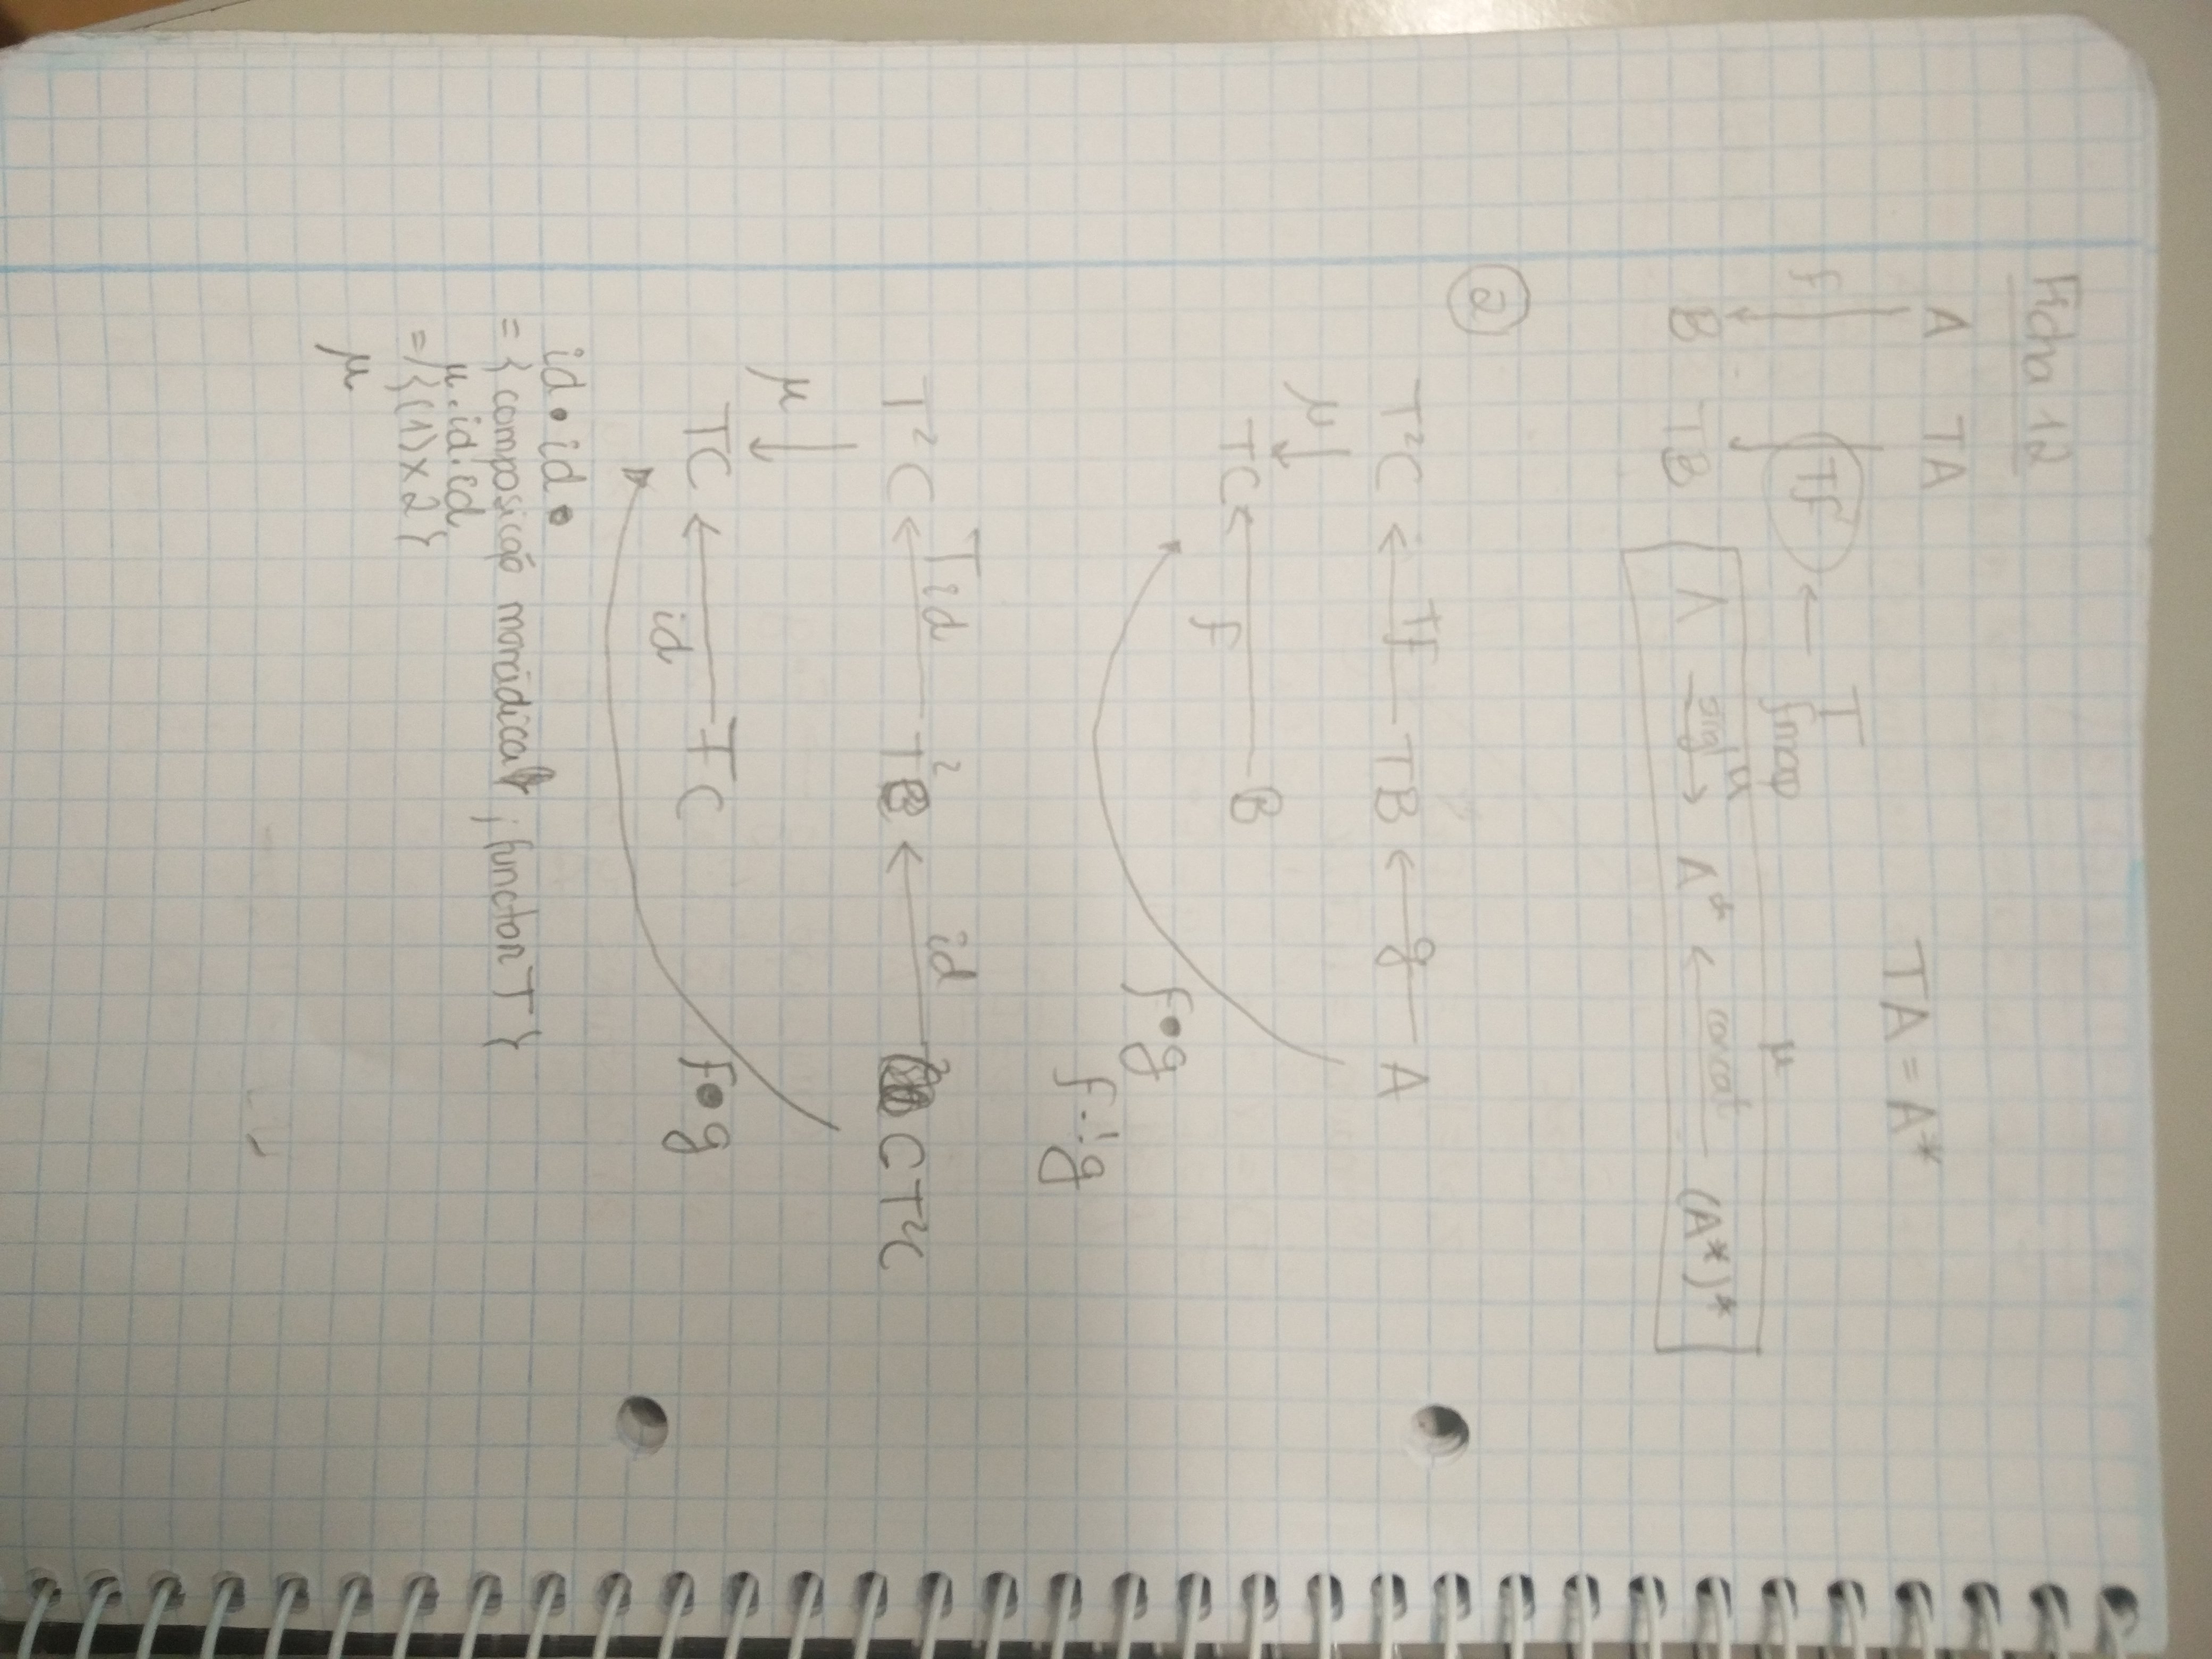 Ficha 12
A TA
TA = A*
f Tf ← T
fmap
μ
B TB
A singl u → A* ← concat (A*)*
2
T²C ← Tf TB ← g A
μ ↓
TC ← f B
f • g
f .! g
T²C ← Tid T²C ← id C T²C
μ ↓
TC ← id TC
f • g
id • id •
= { composição monádica ; functor T }
μ . id . id
= {(1)×2}
μ